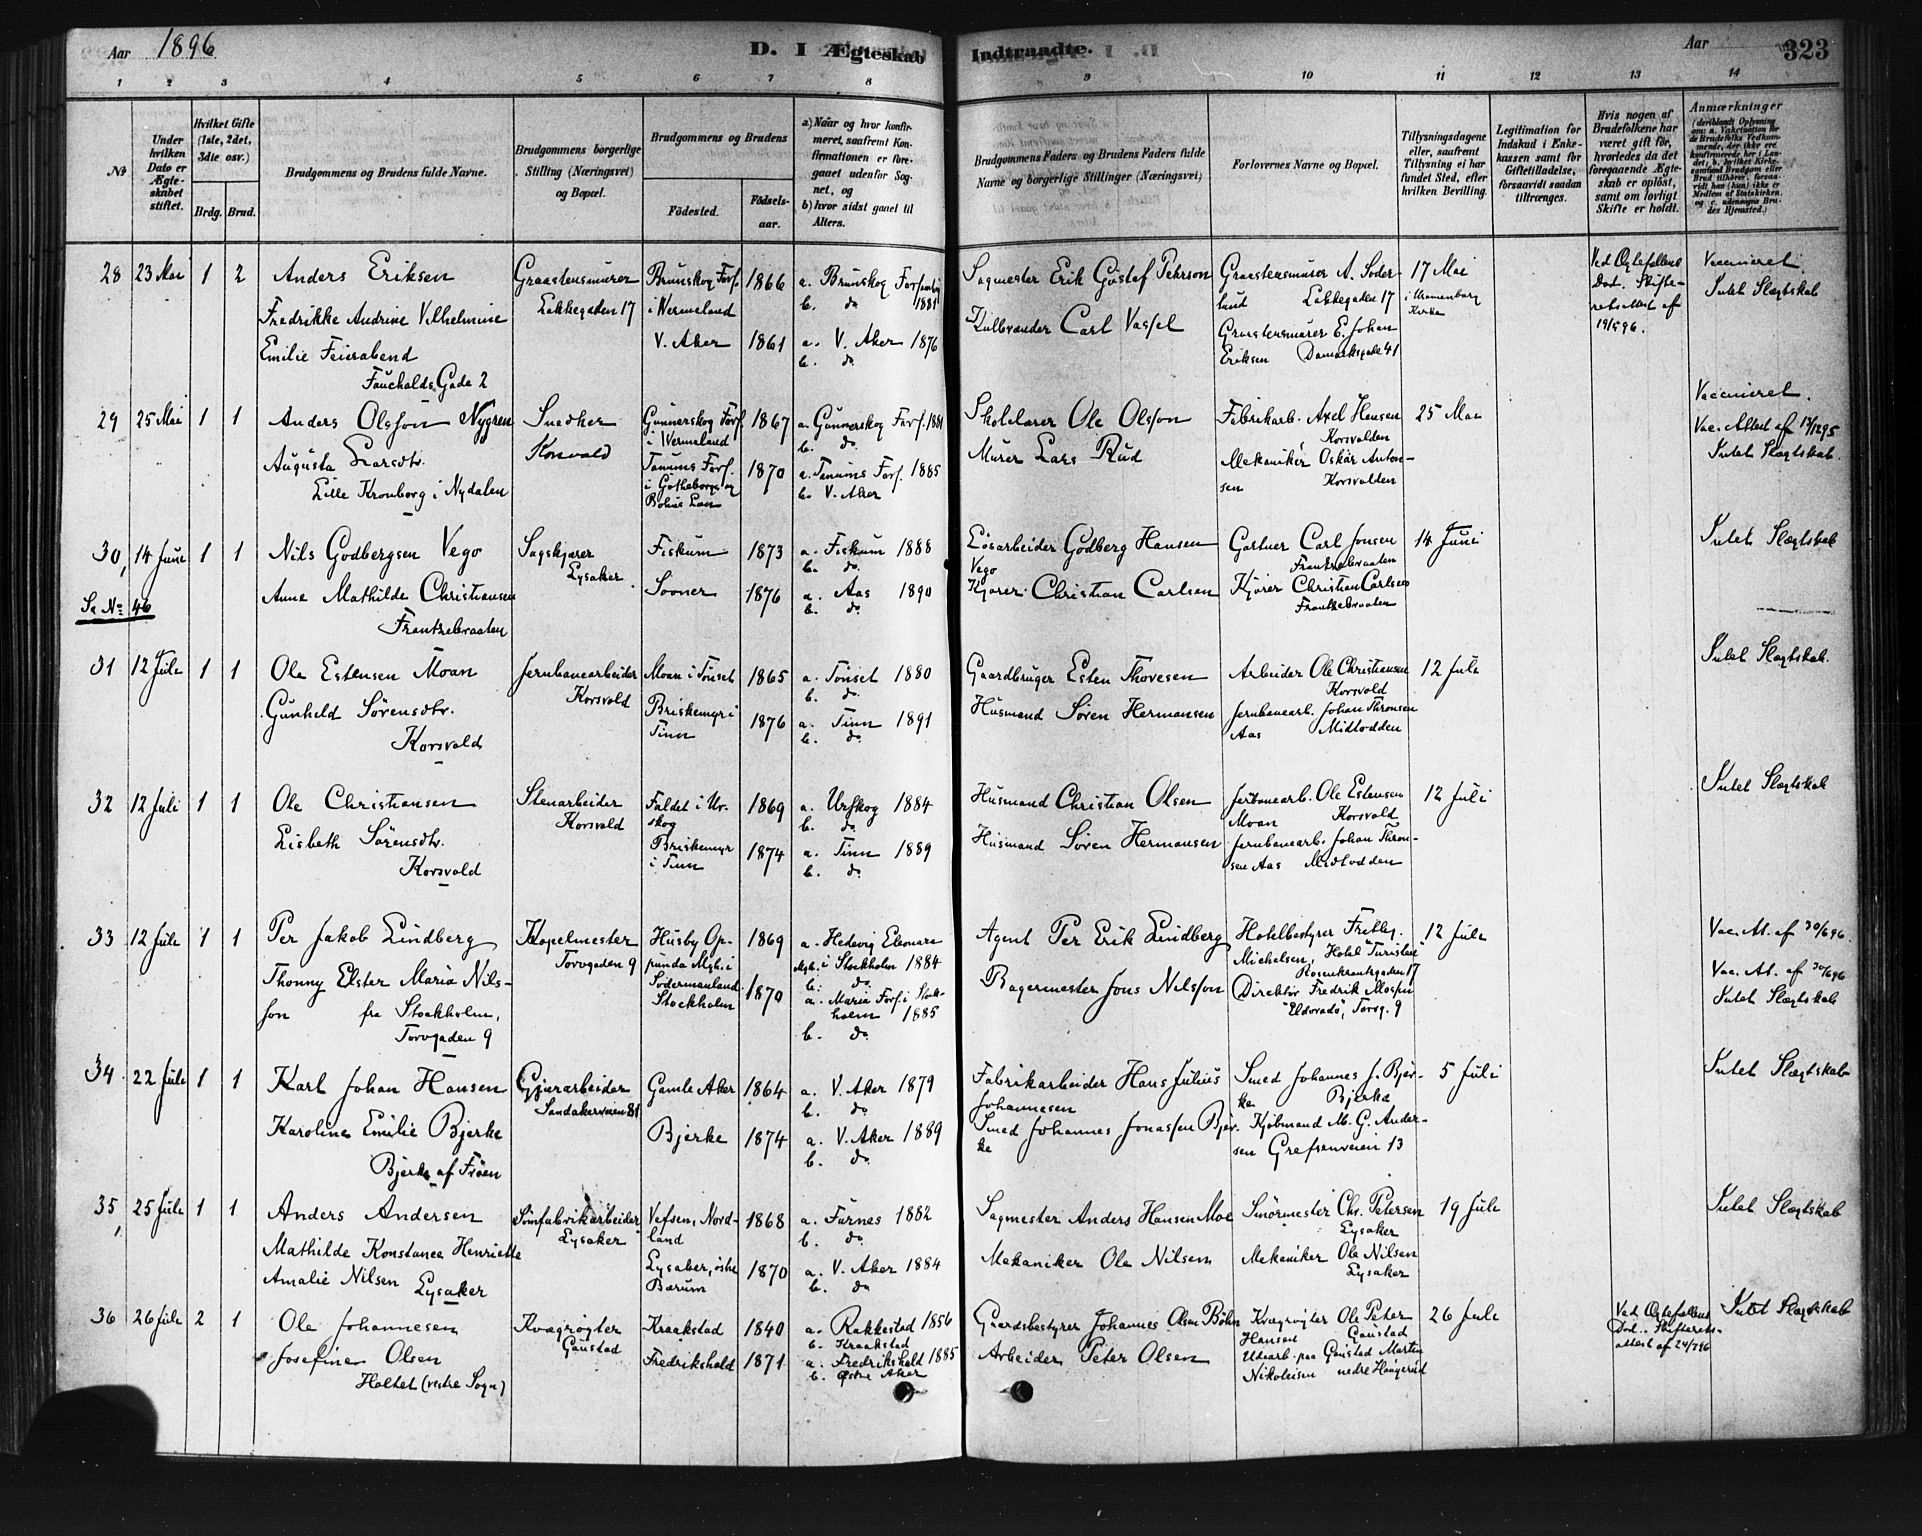 Aar 1896
D. I Ægteskab Indtraadte.
Aar 323
1 2 3 4 5 6 7 8 9 10 11 12 13 14
No
Under hvilken Dato er Ægteskabet stiftet.
Hvilket Gifte (1ste, 2det, 3die osv.)
Brdg. Brud.
Brudgommens og Brudens fulde Navne.
Brudgommens borgerlige Stilling (Næringsvei) og Bopæl.
Brudgommens og Brudens
Födested.
Födsels-aar.
a) Naar og hvor konfirmeret, saafremt Konfirmationen er foregaaet udenfor Sognet, og
b) hvor sidst gaaet til Alters.
Brudgommens Faders og Brudens Faders fulde Navne og borgerlige Stillinger (Næringsvei)
Forlovernes Navne og Bopæl.
Tillysningsdagene eller, saafremt Tillysning ei har fundet Sted, efter hvilken Bevilling.
Legitimation for Indskud i Enkekassen samt for Giftetilladelse, forsaavidt saadan tiltrænges.
Hvis nogen af Brudefolkene har været gift för, hvorledes da det foregaaende Ægteskab er oplöst, samt om lovligt Skifte er holdt.
Anmærkninger
28 23 Mai 1 2
Anders Eriksen
Fredrikke Andrine Vilhelmine
Emilie Feierabend
Fauchalds Gade 2
Graastensmurer
Lakkegaden 17
Brunskog Fors.
i Wermeland
V. Aker
1866
1861
a. Brunskog Forsamling
1881
b. do
a. V. Aker 1876
b. do
Sagmester Erik Gustaf Pehrson
Kulbrænder Carl Vassel
Graastensmurer A. Soder-
lund Lakkegaden 17
Graastensmurer E. Johan
Eriksen Damarksgade 41
17 Mai
i Uranienborg
Kirke
Ved Ægtefællens
Død. Skifte-
rets Attest af
19/5 96.
Vaccineret.
Intet Slægtskab
29 25 Mai 1 1
Anders Olsson Nygren
Augusta Larsdtr.
Lille Kronborg i Nydalen
Snedker
Korsvold
Gunnerskog Fors.
i Wermeland
Tanums Fors.
i Gotheborgs og
Bohus Län
1867
1870
a. Gunnerskog Fors. 1881
b. do
a. Tanums Fors. 1885
b. V. Aker
Skolelærer Ole Olsson
Murer Lars Rud
Fabrikarb. Axel Hansen
Korsvolden
Mekaniker Oskar Anton-
sen Korsvolden
25 Mai
Vaccineret.
Vac. Attest af 17/12 95
Intet Slægtskab.
30, 14 Juni 1 1
Se No 46
Nils Godbergsen Vego
Anne Mathilde Christiansen
Frantzebraaten
Sagskjærer
Lysaker
Fiskum
Sooner
1873
1876
a. Fiskum 1888
b. do
a. Aas 1890
b. do
Løsarbeider Godberg Hansen
Vego
Kjører Christian Carlsen
Gartner Carl Jonsen
Frantzebraaten
Kjører Christian Carlsen
Frantzebraaten
14 Juni
Intet Slægtskab
31 12 Juli 1 1
Ole Estensen Moan
Gunhild Sørensdtr.
Korsvold
Jernbanearbeider
Korsvold
Moan i Tønset
Briskemyr i
Tinn
1865
1876
a. Tønset 1880
b. do
a. Tinn 1891
b. do
Gaardbruger Esten Thoresen
Husmand Søren Hermansen
Arbeider Ole Christiansen
Korsvold
Jernbanearb. Johan Thronsen
Aas Midtodden
12 Juli
Intet Slægtskab.
32 12 Juli 1 1
Ole Christiansen
Lisbeth Sørensdtr.
Korsvold
Stenarbeider
Korsvold
Faldet i Ur-
skog
Briskemyr
i Tinn
1869
1874
a. Urskog 1884
b. do
a. Tinn 1889
b. do
Husmand Christian Olsen
Husmand Søren Hermansen
Jerbanearb. Ole Estensen
Moan Korsvold
Jernbanearb. Johan Thron-
sen Aas Midtodden
12 Juli
Intet Slægtskab
33 12 Juli 1 1
Per Jakob Lindberg
Thonny Elster Maria Nils-
son fra Stockholm,
Torvgaden 9
Kapelmester
Torvgaden 9
Husby Op-
punda Mgh. i
Södermanland
Stockholm
1869
1870
a. Hedevig Eleonara
Mgh. i Stockholm 1884
b. do
a. Maria Fors. i Stock-
holm 1885
b. do
Agent Per Erik Lindberg
Bagermester Jons Nilsson
Hotelbestyrer
Michelsen, Hotel "Turisten"
Rosenkrantzgaden 17
Direktør Fredrik
"Eldorado", Torvg. 9
12 Juli
Vac. At. af 30/6 96.
Vac. At. af 30/6 96
Intet Slægtskab
34 22 Juli 1 1
Karl Johan Hansen
Karoline Emilie Bjerke
Bjerke af Frøen
Gjærarbeider
Sandakerveien 81
Gamle Aker
Bjerke
1864
1874
a. V. Aker 1879
b. do
a. V. Aker 1889
b. do
Fabrikarbeider Hans Julius
Johannesen
Smed Johannes Jonassen Bjer-
ke
Smed Johannes J. Bjer-
ke Bjerke
Kjøbmand M. G. Ander-
sen Grefsenveien 13
5 Juli
Intet Slægtskab
35, 25 Juli 1 1
Anders Andersen
Mathilde Konstance Henriette
Amalie Nilsen Lysaker
Sømfabrikarbeider
Lysaker
Vefsen, Nord-
land
Lysaker, østre
Bærum
1868
1870
a. Furnes 1882
b. do
a. V. Aker 1884
b. do
Sagmester Anders Hansen Moe
Mekaniker Ole Nilsen
Smörmester Chr. Petersen
Lysaker
Mekaniker Ole Nilsen
Lysaker
19 Juli
Intet Slægtskab
36 26 Juli 2 1
Ole Johannesen
Josefine Olsen
Holtet (vestre Sogn)
Kvægrøgter
Gaustad
Kraakstad
Fredrikshald
1840
1871
a. Rakkestad 1856
b. Kraakstad
a. Fredrikshald 1885
b. Østre Aker
Gaardsbestyrer Johannes Olsen Bøhn
Arbeider Peter Olsen
Kvægrøgter Ole Peter
Hansen Gaustad
Udearb. paa Gaustad Martin
Nikolaisen nedre Haugerud
26 Juli
Ved Ægtefællens
Død. Skifterets-
attest af 24/7 96
Intet Slægtskab